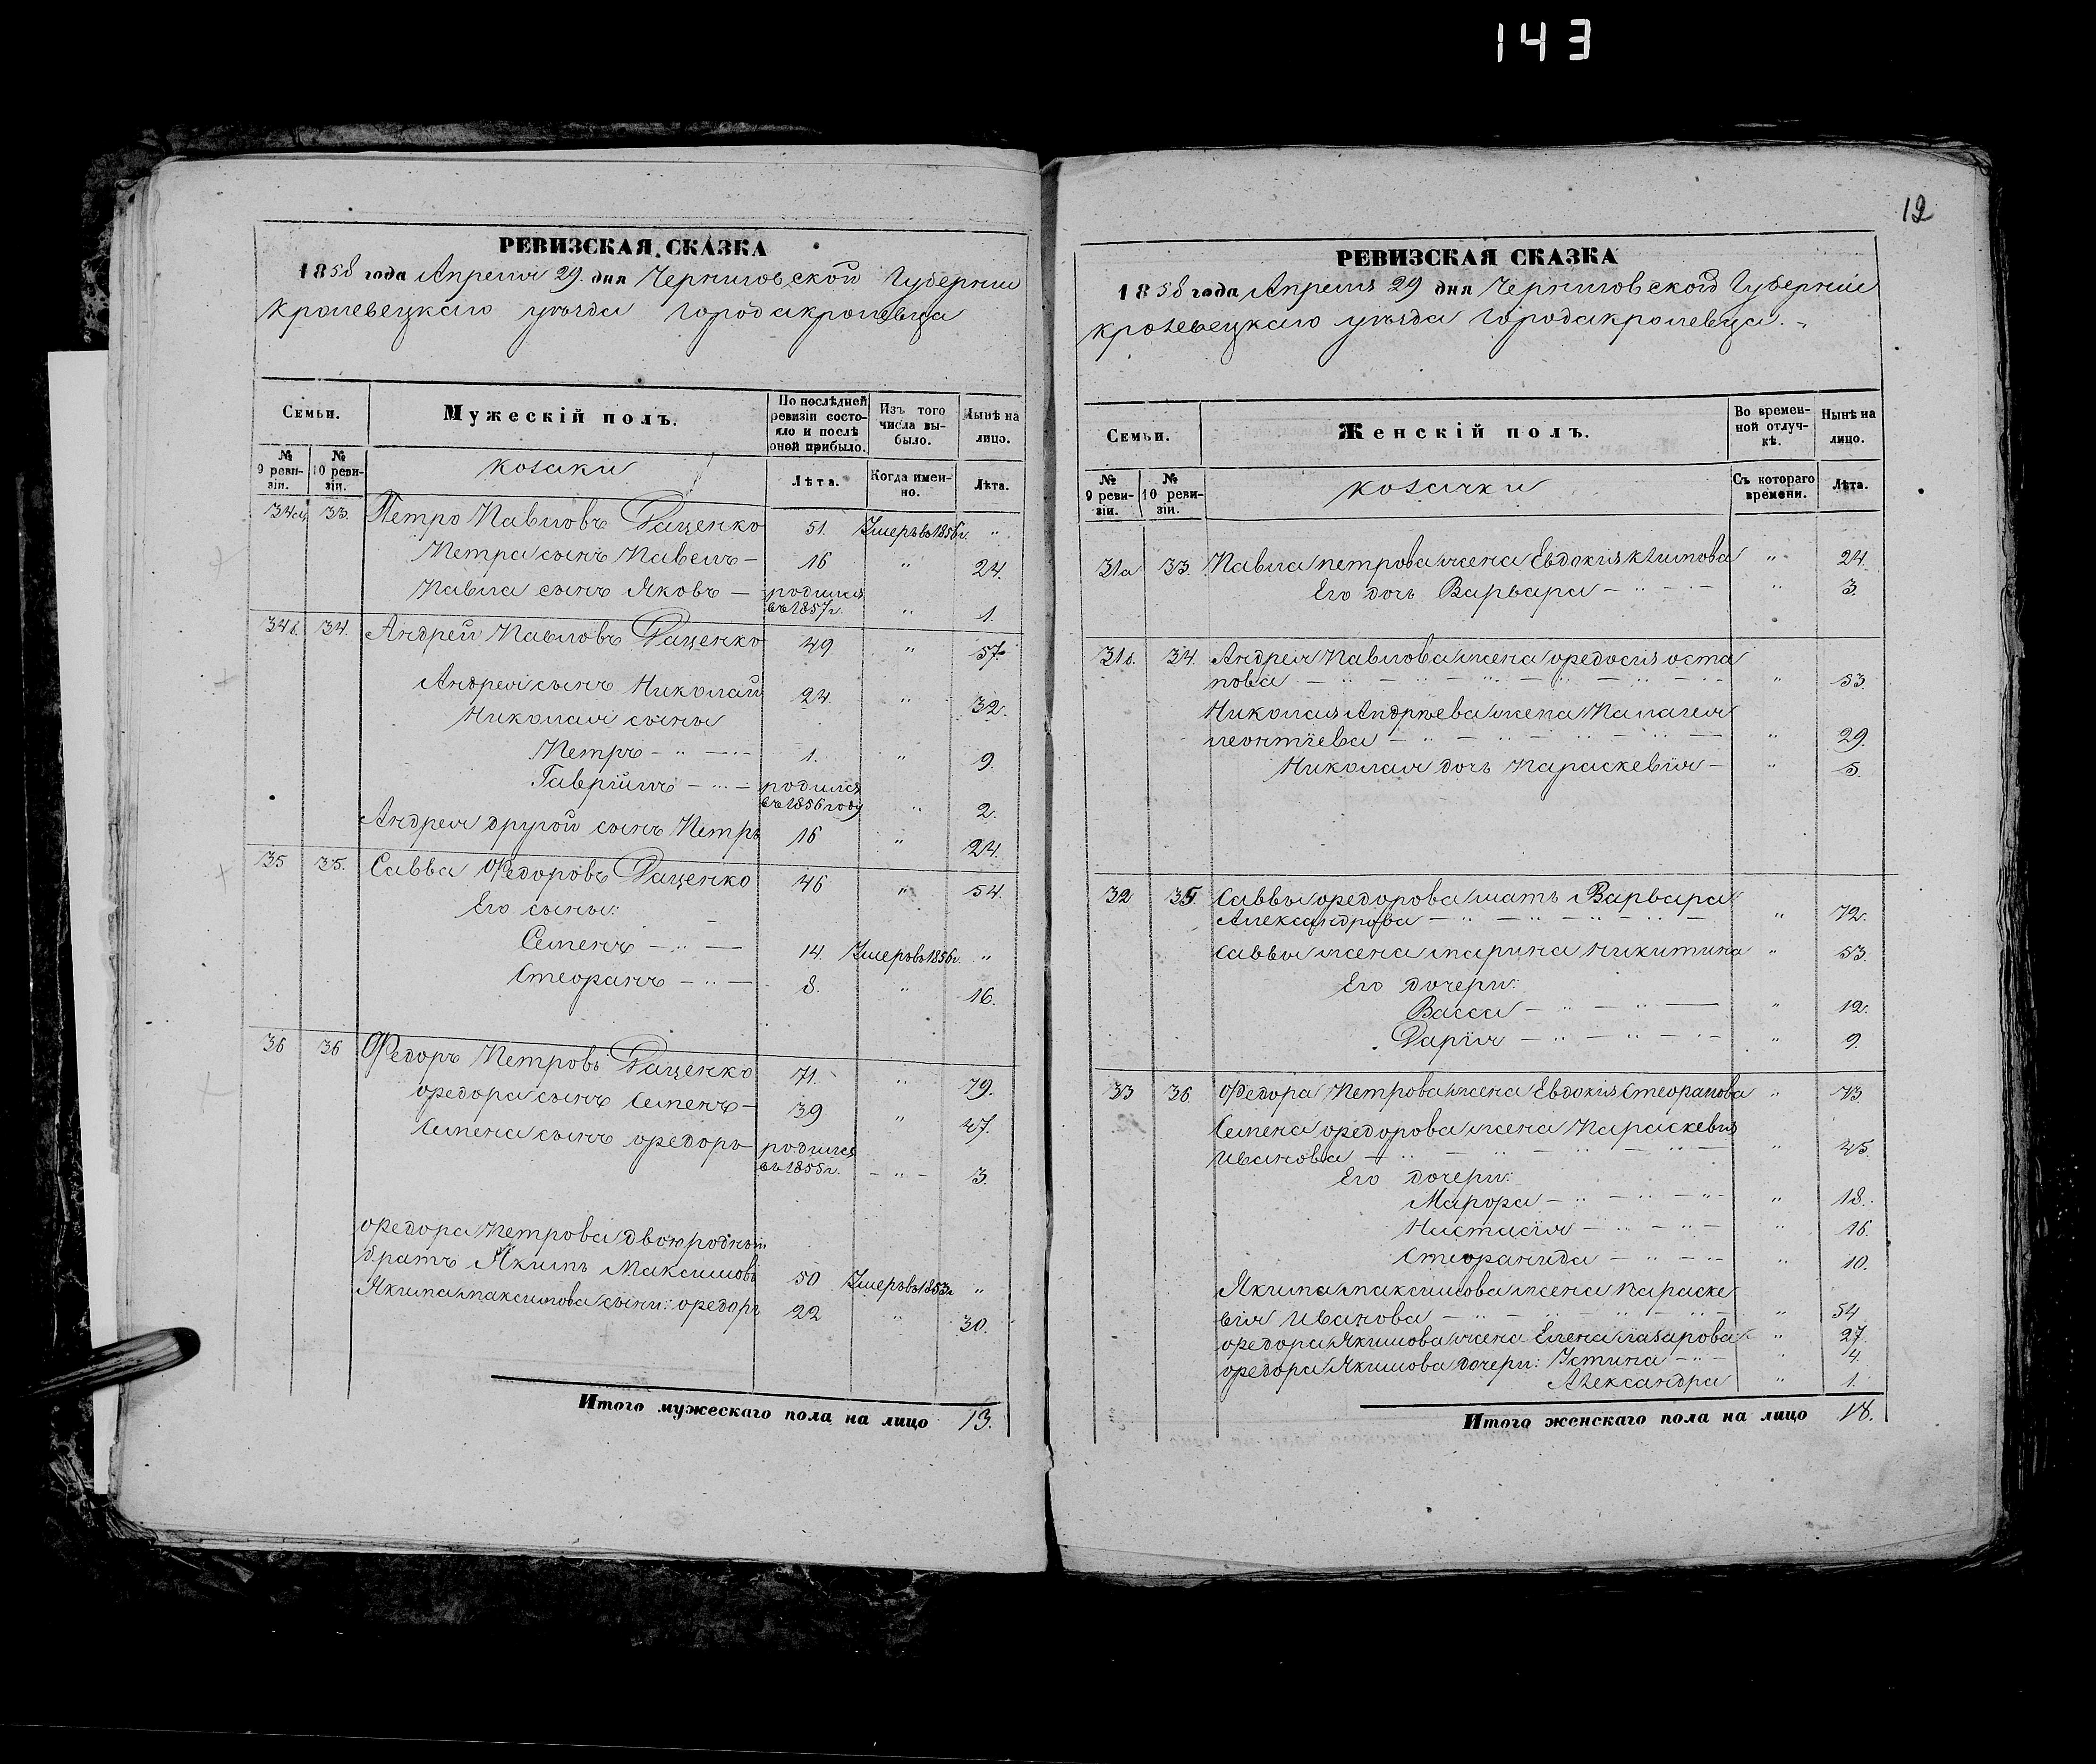 143
12
РЕВИЗСКАЯ СКАЗКА
1858 года Апреля 29. дня Черниговской Губернии
Кролевецкаго уѣзда города кролевца
Семьи.
Мужескій полъ.
По послѣдней ревизіи состояло и послѣ оной прибыло.
Изъ того числа выбыло.
Нынѣ на лицо.
№ 9 ревизіи.
№ 10 ревизіи.
козаки
Лѣта.
Когда именно.
Лѣта.
34а 33. Петро Павловъ Даценко 51. Умеръ въ 1856 г. "
Петра сынъ Павелъ — 16 " 24.
Павла сынъ Яковъ — родился въ 1857 г. " 1.
34б. 34. Андрей Павловъ Даценко 49 " 57.
Андрея сынъ Николай 24. " 32.
Николая сыны
Петръ — " — 1. " 9.
Гавріилъ — " — родился въ 1856 году " 2.
Андрея другой сынъ Петръ 16 " 24.
35 35. Савва Федоровъ Даценко 46 " 54.
Его сыны:
Семенъ — " — 14. Умеръ въ 1856 г. "
Стефанъ — " — 8. " 16.
36 36 Федоръ Петровъ Даценко 71. " 79.
Федора сынъ Семенъ — 39 " 47.
Семена сынъ Федоръ родился въ 1855 г. — " — 3.
Федора Петрова двоюродный
братъ Якимъ Максимовъ 50 Умеръ въ 1853 г. "
Якима максимова сынъ: Федоръ 22 " 30.
Итого мужескаго пола на лицо 13.
РЕВИЗСКАЯ СКАЗКА
1858 года Апреля 29 дня Черниговской Губерніи
кролевецкаго уѣзда города кролевца.
Семьи.
Женскій полъ.
Во временной отлучкѣ.
Нынѣ на лицо.
№ 9 ревизіи.
№ 10 ревизіи.
козачки
Съ котораго времени.
Лѣта.
31а 33. Павла петрова жена Евдокия климова " 24.
Его дочь Варвара — " — " 3.
31б. 34. Андрея Павлова жена Федосия оста
пова — " — " 53.
Николая Андрѣева жена Палагея
леонтіева — " — " 29.
Николая дочь Параскевія — " 5.
32 35. Саввы Федорова мать Варвара
Александрова — " — " 72.
Саввы жена марина никитина " 53.
Его дочери:
Васса — " — " 12.
Дарія — " — " 9.
33 36. Федора Петрова жена Евдокия Стефанова " 73.
Семена Федорова жена Параскевия
Иванова — " — " 45.
Его дочери:
Марфа — " — " 18.
Настасія — " — " 16.
Стефанида — " — " 10.
Якима максимова жена параске
вія Иванова — " — " 54
Федора Якимова жена Елена лазарова " 27.
Федора Якимова дочери: Устина — " — " 4.
Александра " 1.
Итого женскаго пола на лицо 18.